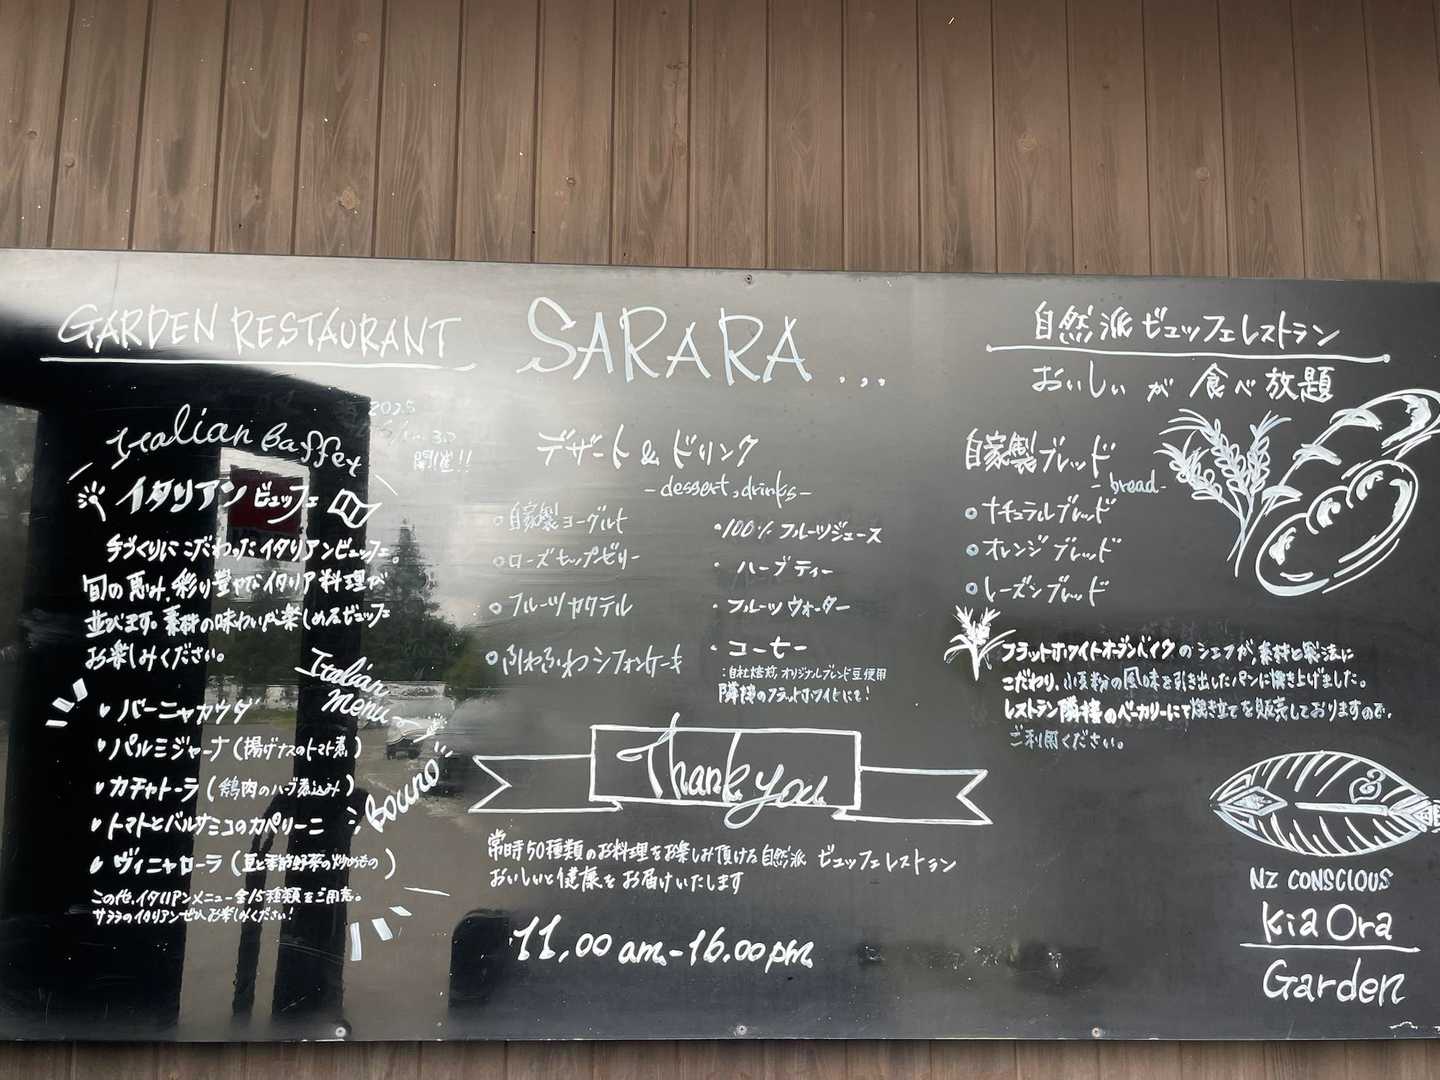 GARDEN RESTAURANT
SARARA...
Italian Baffet
2025
開催!!
イタリアンビュッフェ
手づくりにこだわったイタリアンビュッフェ。
旬の恵み、彩り豊かなイタリア料理が
並びます。素材の味わいが楽しめるビュッフェ
お楽しみください。
Italian
Menu
バーニャカウダ
パルミジャーナ(揚げナスのトマト煮)
カチャトーラ(鶏肉のハーブ煮込み)
トマトとバルサミコのカペリーニ
ヴィニャローラ(豆と季節野菜の炒めもの)
Bouno
この他、イタリアンメニュー全15種類をご用意。
サララのイタリアンぜひお楽しみください!
デザート&ドリンク
-dessert, drinks-
○自家製ヨーグルト
○ローズヒップゼリー
○フルーツカクテル
○ふわふわシフォンケーキ
・100%フルーツジュース
・ハーブティー
・フルーツウォーター
・コーヒー
:自社焙煎オリジナルブレンド豆使用
隣接のフラットホワイトにて!
Thank you
常時50種類のお料理をお楽しみ頂ける自然派 ビュッフェレストラン
おいしいと健康をお届けいたします
11.00am-16.00pm
自然派ビュッフェレストラン
おいしいが食べ放題
自家製ブレッド
-bread-
○ナチュラルブレッド
○オレンジブレッド
○レーズンブレッド
フラットホワイトオーブンベイクのシェフが、素材と製法に
こだわり、小麦粉の風味を引き出したパンに焼き上げました。
レストラン隣接のベーカリーにて焼き立てを販売しておりますので、
ご利用ください。
NZ CONSCIOUS
Kia Ora
Garden